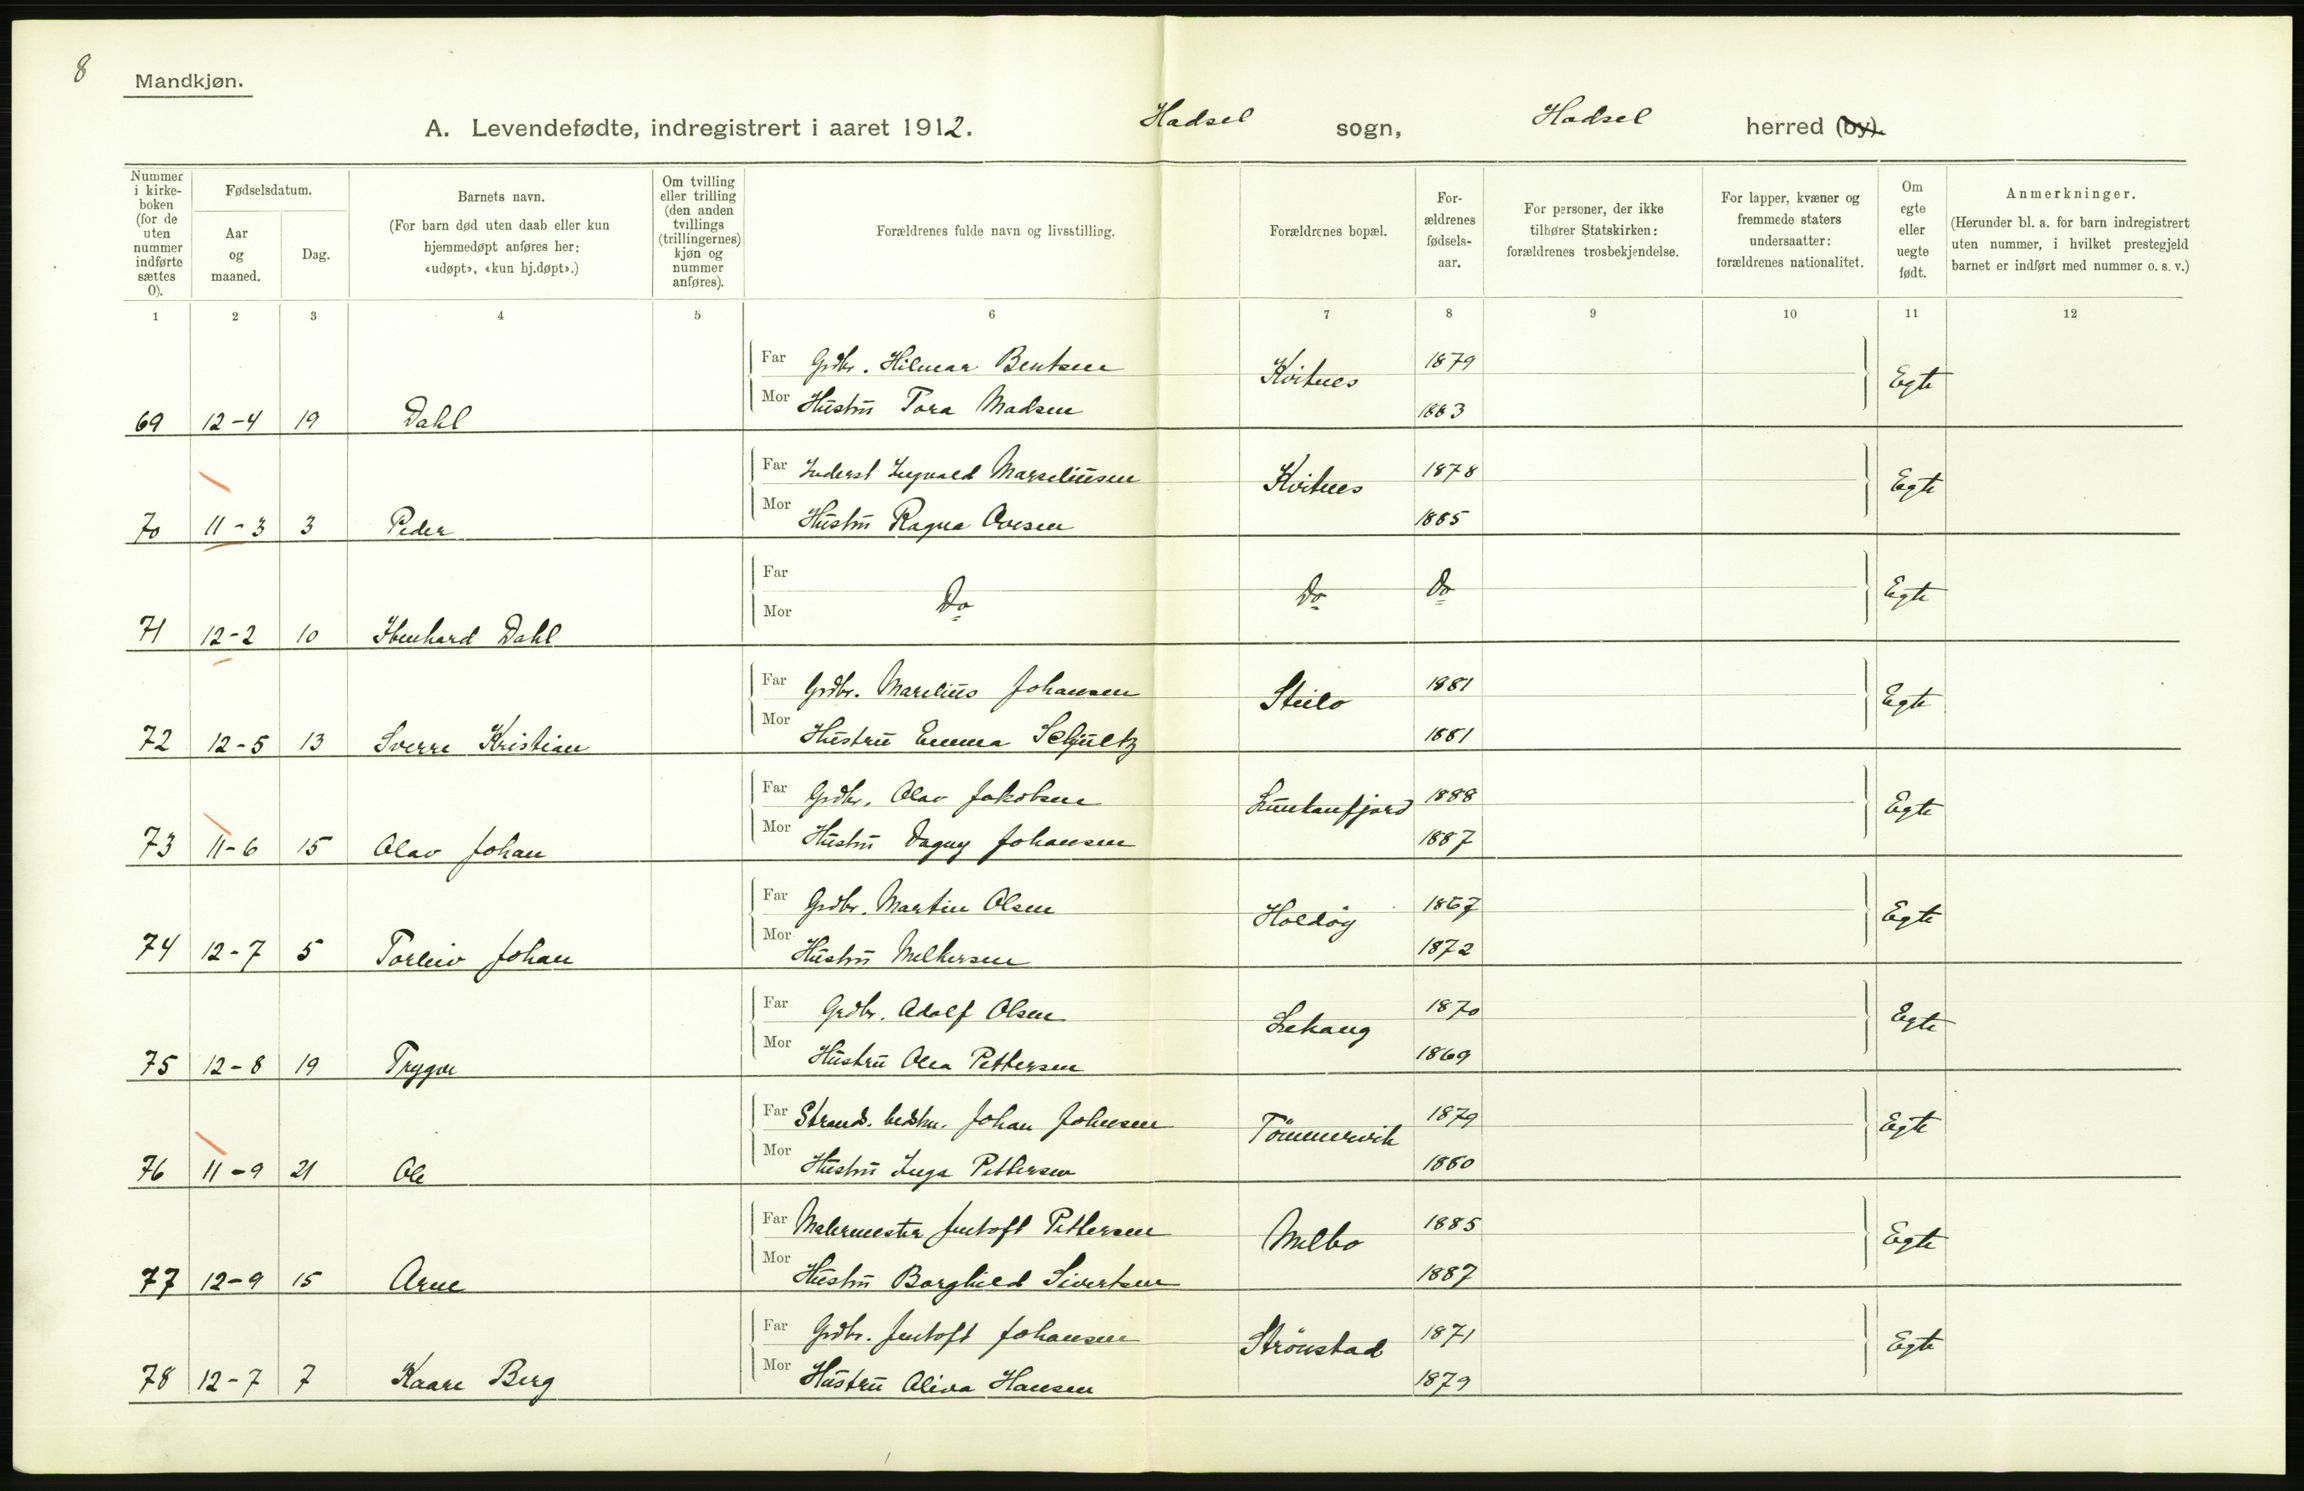 8
Mandkjøn.
A. Levendefødte, indregistrert i aaret 1912. Hadsel sogn, Hadsel herred (by).
Nummer i kirke-boken (for de uten nummer indførte sættes 0).
Fødselsdatum.
Aar og maaned.
Dag.
Barnets navn.
(For barn død uten daab eller kun hjemmedøpt anføres her: «udøpt», «kun hj.døpt».)
Om tvilling eller trilling (den anden tvillings (trillingernes) kjøn og nummer anføres).
Forældrenes fulde navn og livsstilling.
Forældrenes bopæl.
For-ældrenes fødsels-aar.
For personer, der ikke tilhører Statskirken: forældrenes trosbekjendelse.
For lapper, kvæner og fremmede staters undersaatter: forældrenes nationalitet.
Om egte eller uegte født.
Anmerkninger.
(Herunder bl. a. for barn indregistrert uten nummer, i hvilket prestegjeld barnet er indført med nummer o. s. v.)
1 2 3 4 5 6 7 8 9 10 11 12
Far Grdbr. Hilmar Bentsen Kvitnes 1879 Egte
Mor Hustru Tora Madsen 1883
69 12-4 19 Dahl
Far Inderst Ingvald Marseliusen Kvitnes 1878 Egte
Mor Hustru Ragna Ovesen 1885
70 11-3 3 Peder
Far Do Do Do Egte
Mor
71 12-2 10 Ibenhard Dahl
Far Grdbr. Marelius Johansen Steilo 1881 Egte
Mor Hustru Emma Schjultz 1881
72 12-5 13 Sverre Kristian
Far Grdbr. Olav Jakobsen 1888 Egte
Mor Hustru Dagny Johansen 1887
73 11-6 15 Olav Johan
Far Grdbr. Martin Olsen Holdøy 1867 Egte
Mor Hustru Melkersen 1872
74 12-7 5 Torleiv Johan
Far Grdbr. Adolf Olsen Lekang 1870 Egte
Mor Hustru Olea Pettersen 1869
75 12-8 19 Trygve
Far Strands. Johan Johnsen Tömmervik 1879 Egte
Mor Hustru Inga Pettersen 1880
76 11-9 21 Ole
Far Malermester Jentoft Pettersen Melbo 1885 Egte
Mor Hustru Borghild Sivertsen 1887
77 12-9 15 Arne
Far Grdbr. Jentoft Johansen Strönstad 1871 Egte
Mor Hustru Oliva Hansen 1879
78 12-7 7 Kaare Berg